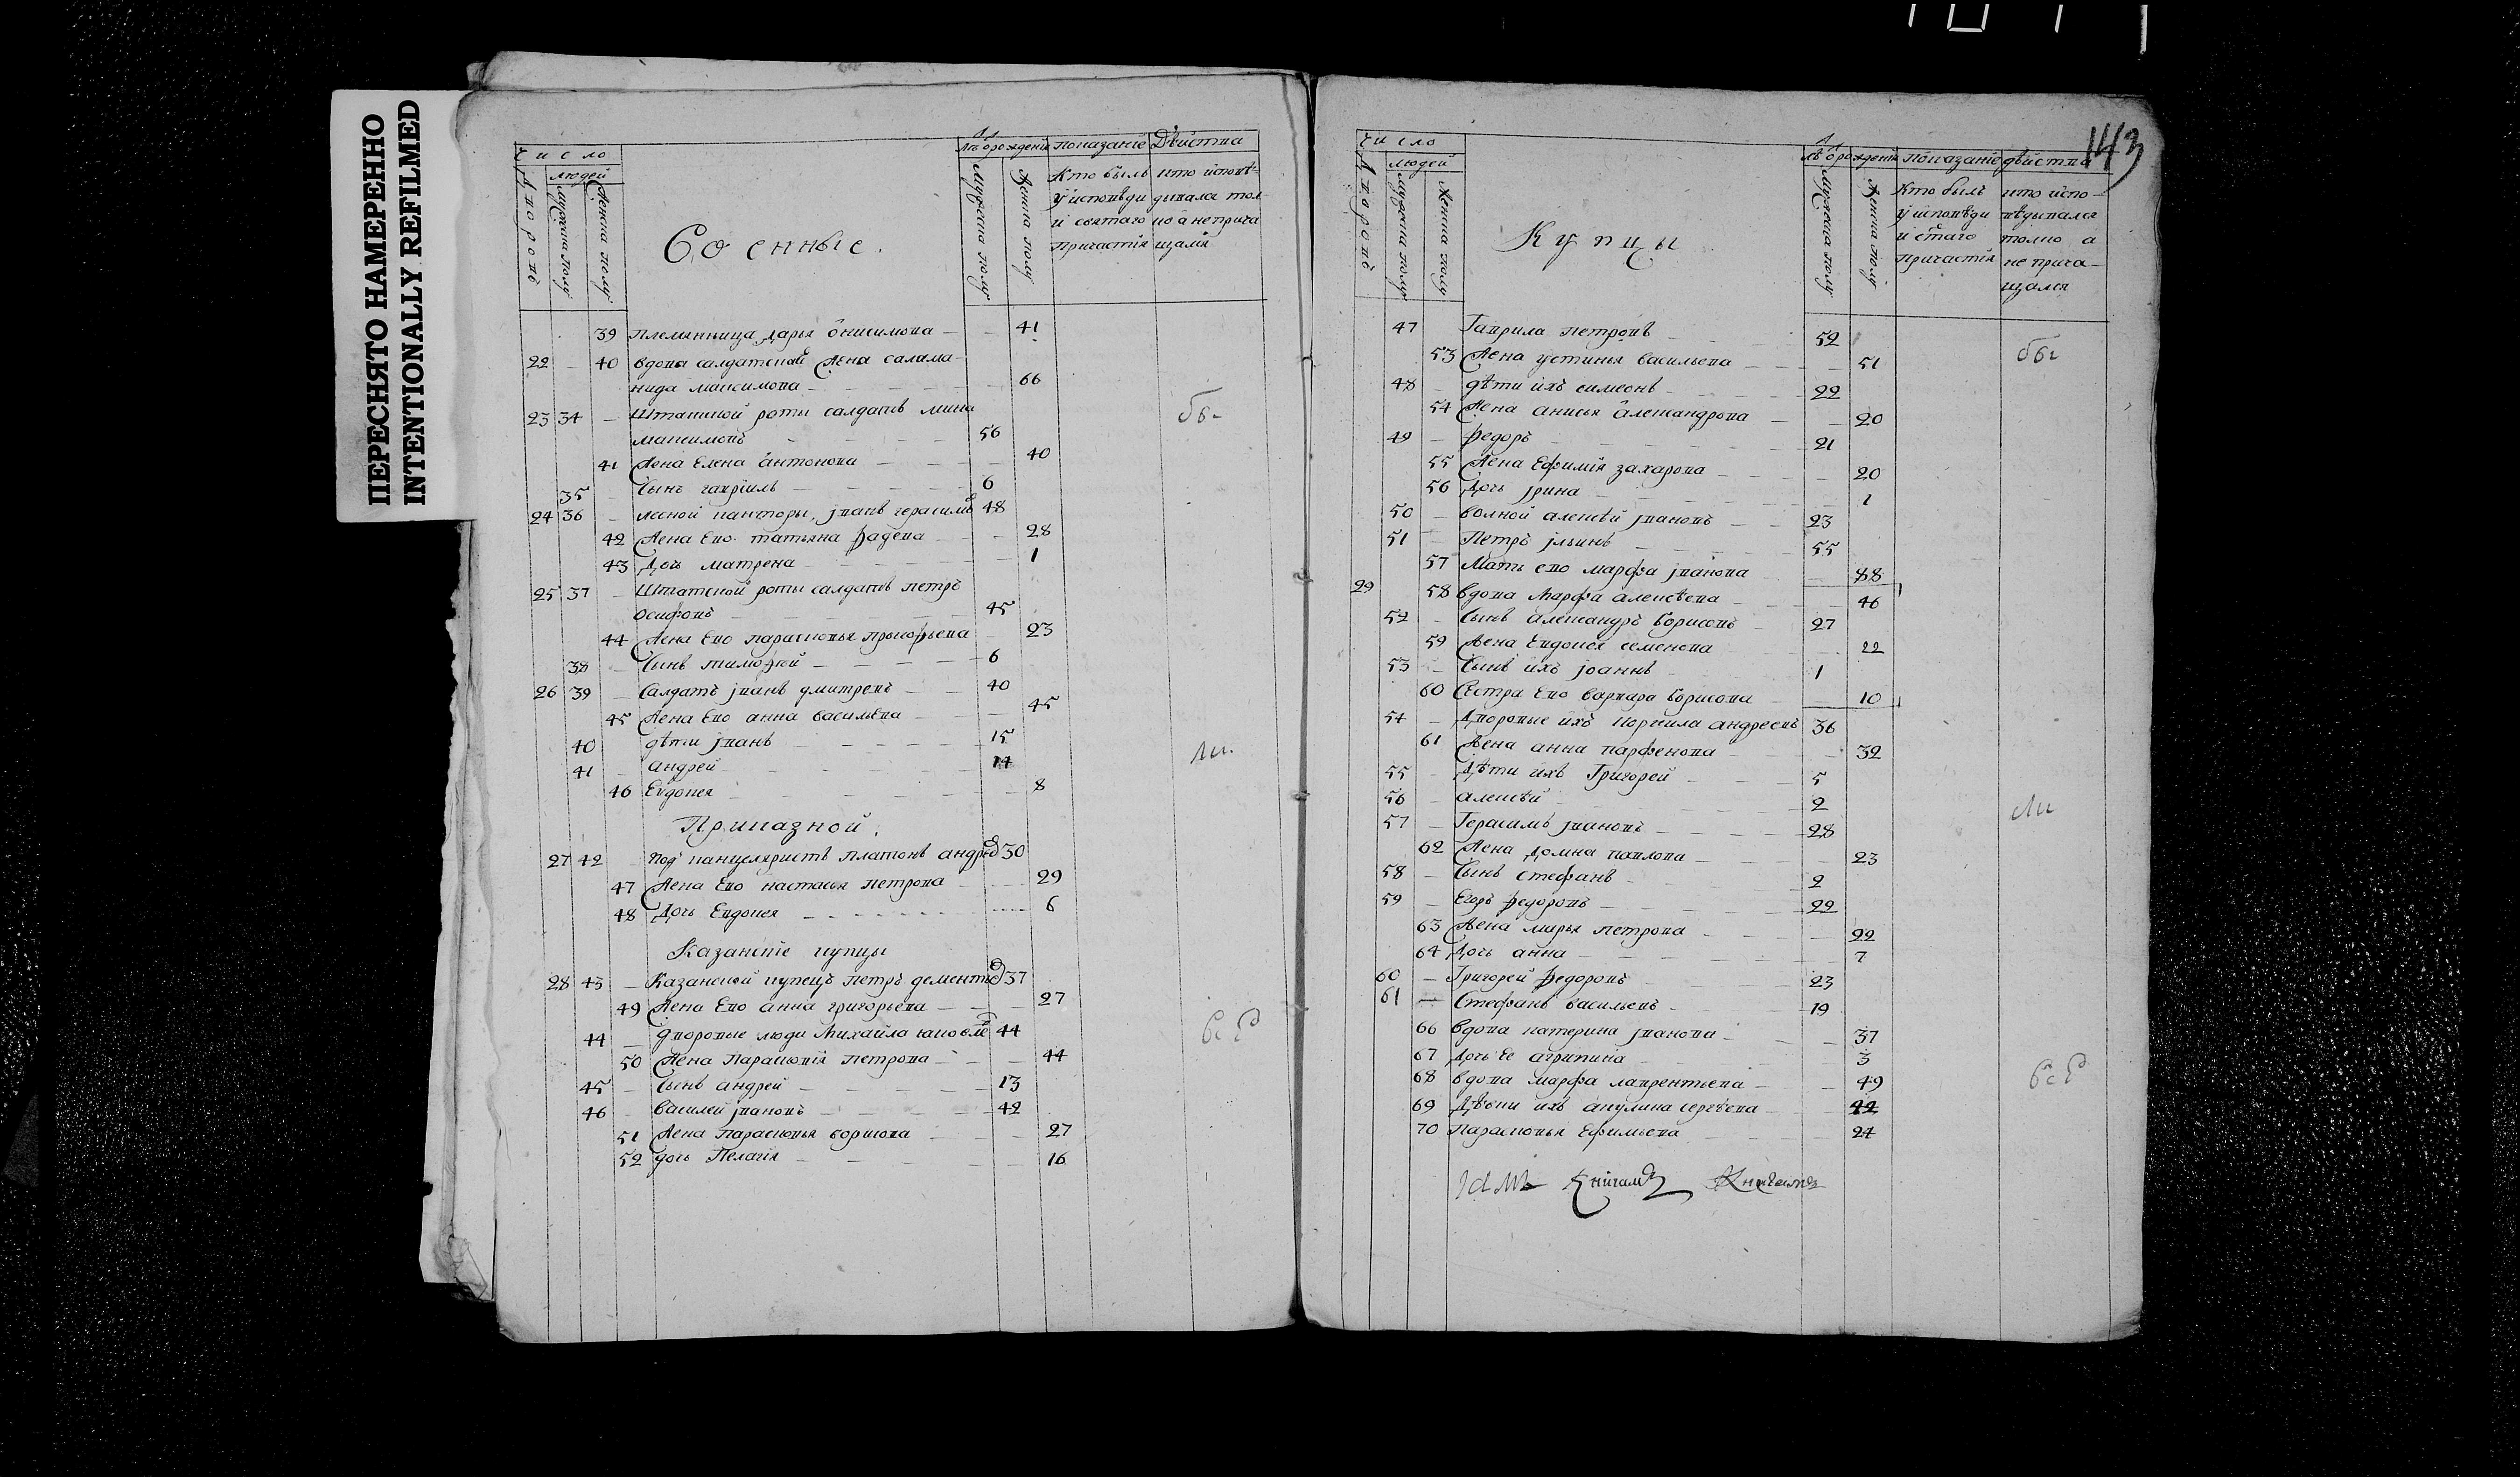 ПЕРЕСНЯТО НАМЕРЕННО
INTENTIONALLY REFILMED
число
людей
дворовъ
мужеска полу
женска полу
Военные.
лѣ ѿ рождениѧ
мужеска полу
женска полу
показание Дѣиства
Кто былъ у исповѣди и святаго причастия
кто исповѣдывался толко а не причащался
39 племянница дарья онисимова — 41
22 — 40 вдова салдатская жена салама-
нида максимова — 66
23 34 — Штатской роты салдатъ мина
максимовъ — 56
41 жена елена антонова — 40
35 — сынъ гавриилъ — 6
24 36 — лесной канторы, иванъ герасимов 48
42 жена ево татьяна фадева — 28
43 дочь матрена — 1
25 37 — Штатской роты салдатъ петръ
осифовъ — 45
44 жена ево парасковья прокофьева 23
38 — сынъ тимофей — 6
26 39 — Салдатъ иванъ дмитревъ — 40
45 жена ево анна васильева — 45
40 дѣти иванъ — 15
41 — андрей — 14
46 Евдокея — 8
Приказной.
27 42 под канцеляристъ платонъ андрѣев 30
47 жена ево настасья петрова — 29
48 дочь Евдокея — 6
Казанские купцы
28 43 — Казанской купецъ петръ дементьев 37
49 жена ево анна григорьева — 27
44 — дворовые люди михайло яковлев 44
50 жена парасковия петрова — 44
45 — сынъ андрей — 13
46 — василей ивановъ — 42
51 жена парасковья борисова — 27
52 дочь Пелагия — 16
143
число
людей
дворовъ
мужеска полу
женска полу
Купцы
лѣ ѿ рождениѧ
мужеска полу
женска полу
показание дѣиства
Кто былъ у исповѣди и стаго причастия
кто испо-
вѣдывался
толко а
не прича-
щался
47 Гаврила петровъ — 52
53 жена устинья васильева — 51
48 — дѣти ихъ симеонъ — 22
54 жена анисья александрова — 20
49 — федоръ — 21
55 жена Ефимия захарова — 20
56 дочь ирина — 1
50 — волной алексѣй ивановъ — 23
51 — Петръ ильинъ — 55
57 мать ево марфа иванова — 88
29 58 вдова марфа алексѣева — 46
52 — сынъ александръ борисовъ — 27
59 жена Евдокея семенова — 22
53 — сынъ ихъ иоаннъ — 1
60 сестра ево варвара борисова — 10
54 — дворовые ихъ корнила андреевъ 36
61 жена анна парфенова — 32
55 — дѣти ихъ Григорей — 5
56 — алексѣй — 2
57 — Герасимъ ивановъ — 28
62 жена домна павлова — 23
58 — сынъ стефанъ — 2
59 — Егоръ федоровъ — 22
63 жена марья петрова — 22
64 дочь анна — 7
60 — Григорей федоровъ — 23
61 — Стефанъ васильевъ — 19
66 вдова катерина иванова — 37
67 дочь ее агрипина — 3
68 вдова марфа лаврентьева — 49
69 дѣвки ихъ акулина сергѣева — 42
70 парасковья Ефимьева — 21